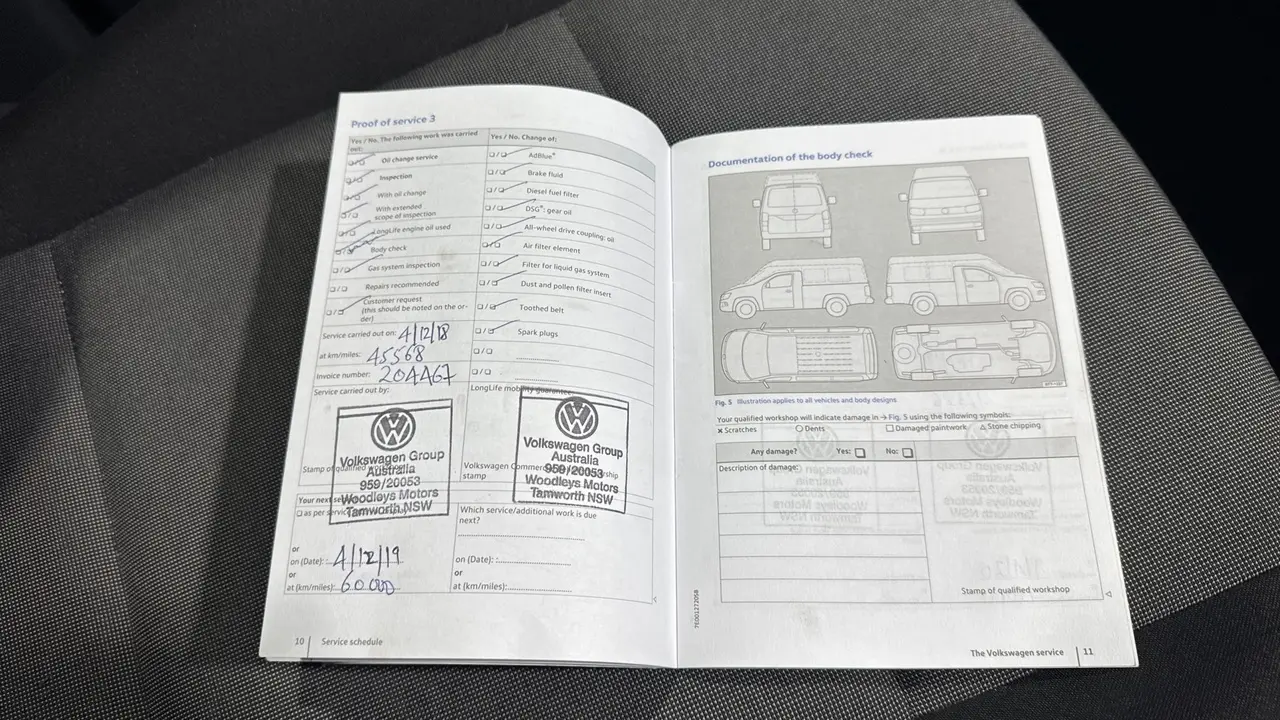 Proof of service 3
Yes / No. The following work was carried out:
Oil change service
Inspection
With oil change
With extended scope of inspection
LongLife engine oil used
Body check
Gas system inspection
Repairs recommended
Customer request
(this should be noted on the or-
der)
Service carried out on: 4/12/18
at km/miles: 45568
Invoice number: 204467
Service carried out by:
Volkswagen Group
Australia
959/20053
Woodleys Motors
Tamworth NSW
Stamp of qualified
Your next
as per
or
on (Date): 4/12/19
or
at (km/miles): 60 000
Yes / No. Change of:
AdBlue®
Brake fluid
Diesel fuel filter
DSG®: gear oil
All-wheel drive coupling: oil
Air filter element
Filter for liquid gas system
Dust and pollen filter insert
Toothed belt
Spark plugs
LongLife mobility guarantee
Volkswagen Group
Australia
959/20053
Woodleys Motors
Tamworth NSW
Volkswagen
stamp
Which service/additional work is due
next?
on (Date):
or
at (km/miles):
10 | Service schedule
Documentation of the body check
Fig. 5 Illustration applies to all vehicles and body designs
Your qualified workshop will indicate damage in → Fig. 5 using the following symbols:
× Scratches ○ Dents □ Damaged paintwork △ Stone chipping
Any damage? Yes: □ No: □
Description of damage:
Stamp of qualified workshop
7E0012720SB
The Volkswagen service | 11